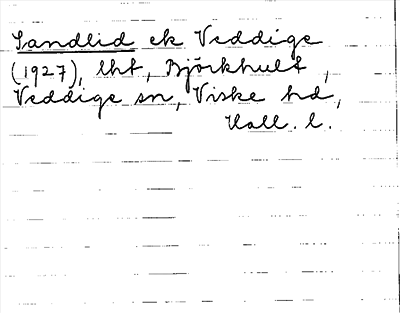 Sandlid ek Veddige
(1927), lht, Björkhult,
Veddige sn, Viske hd,
Hall. l.